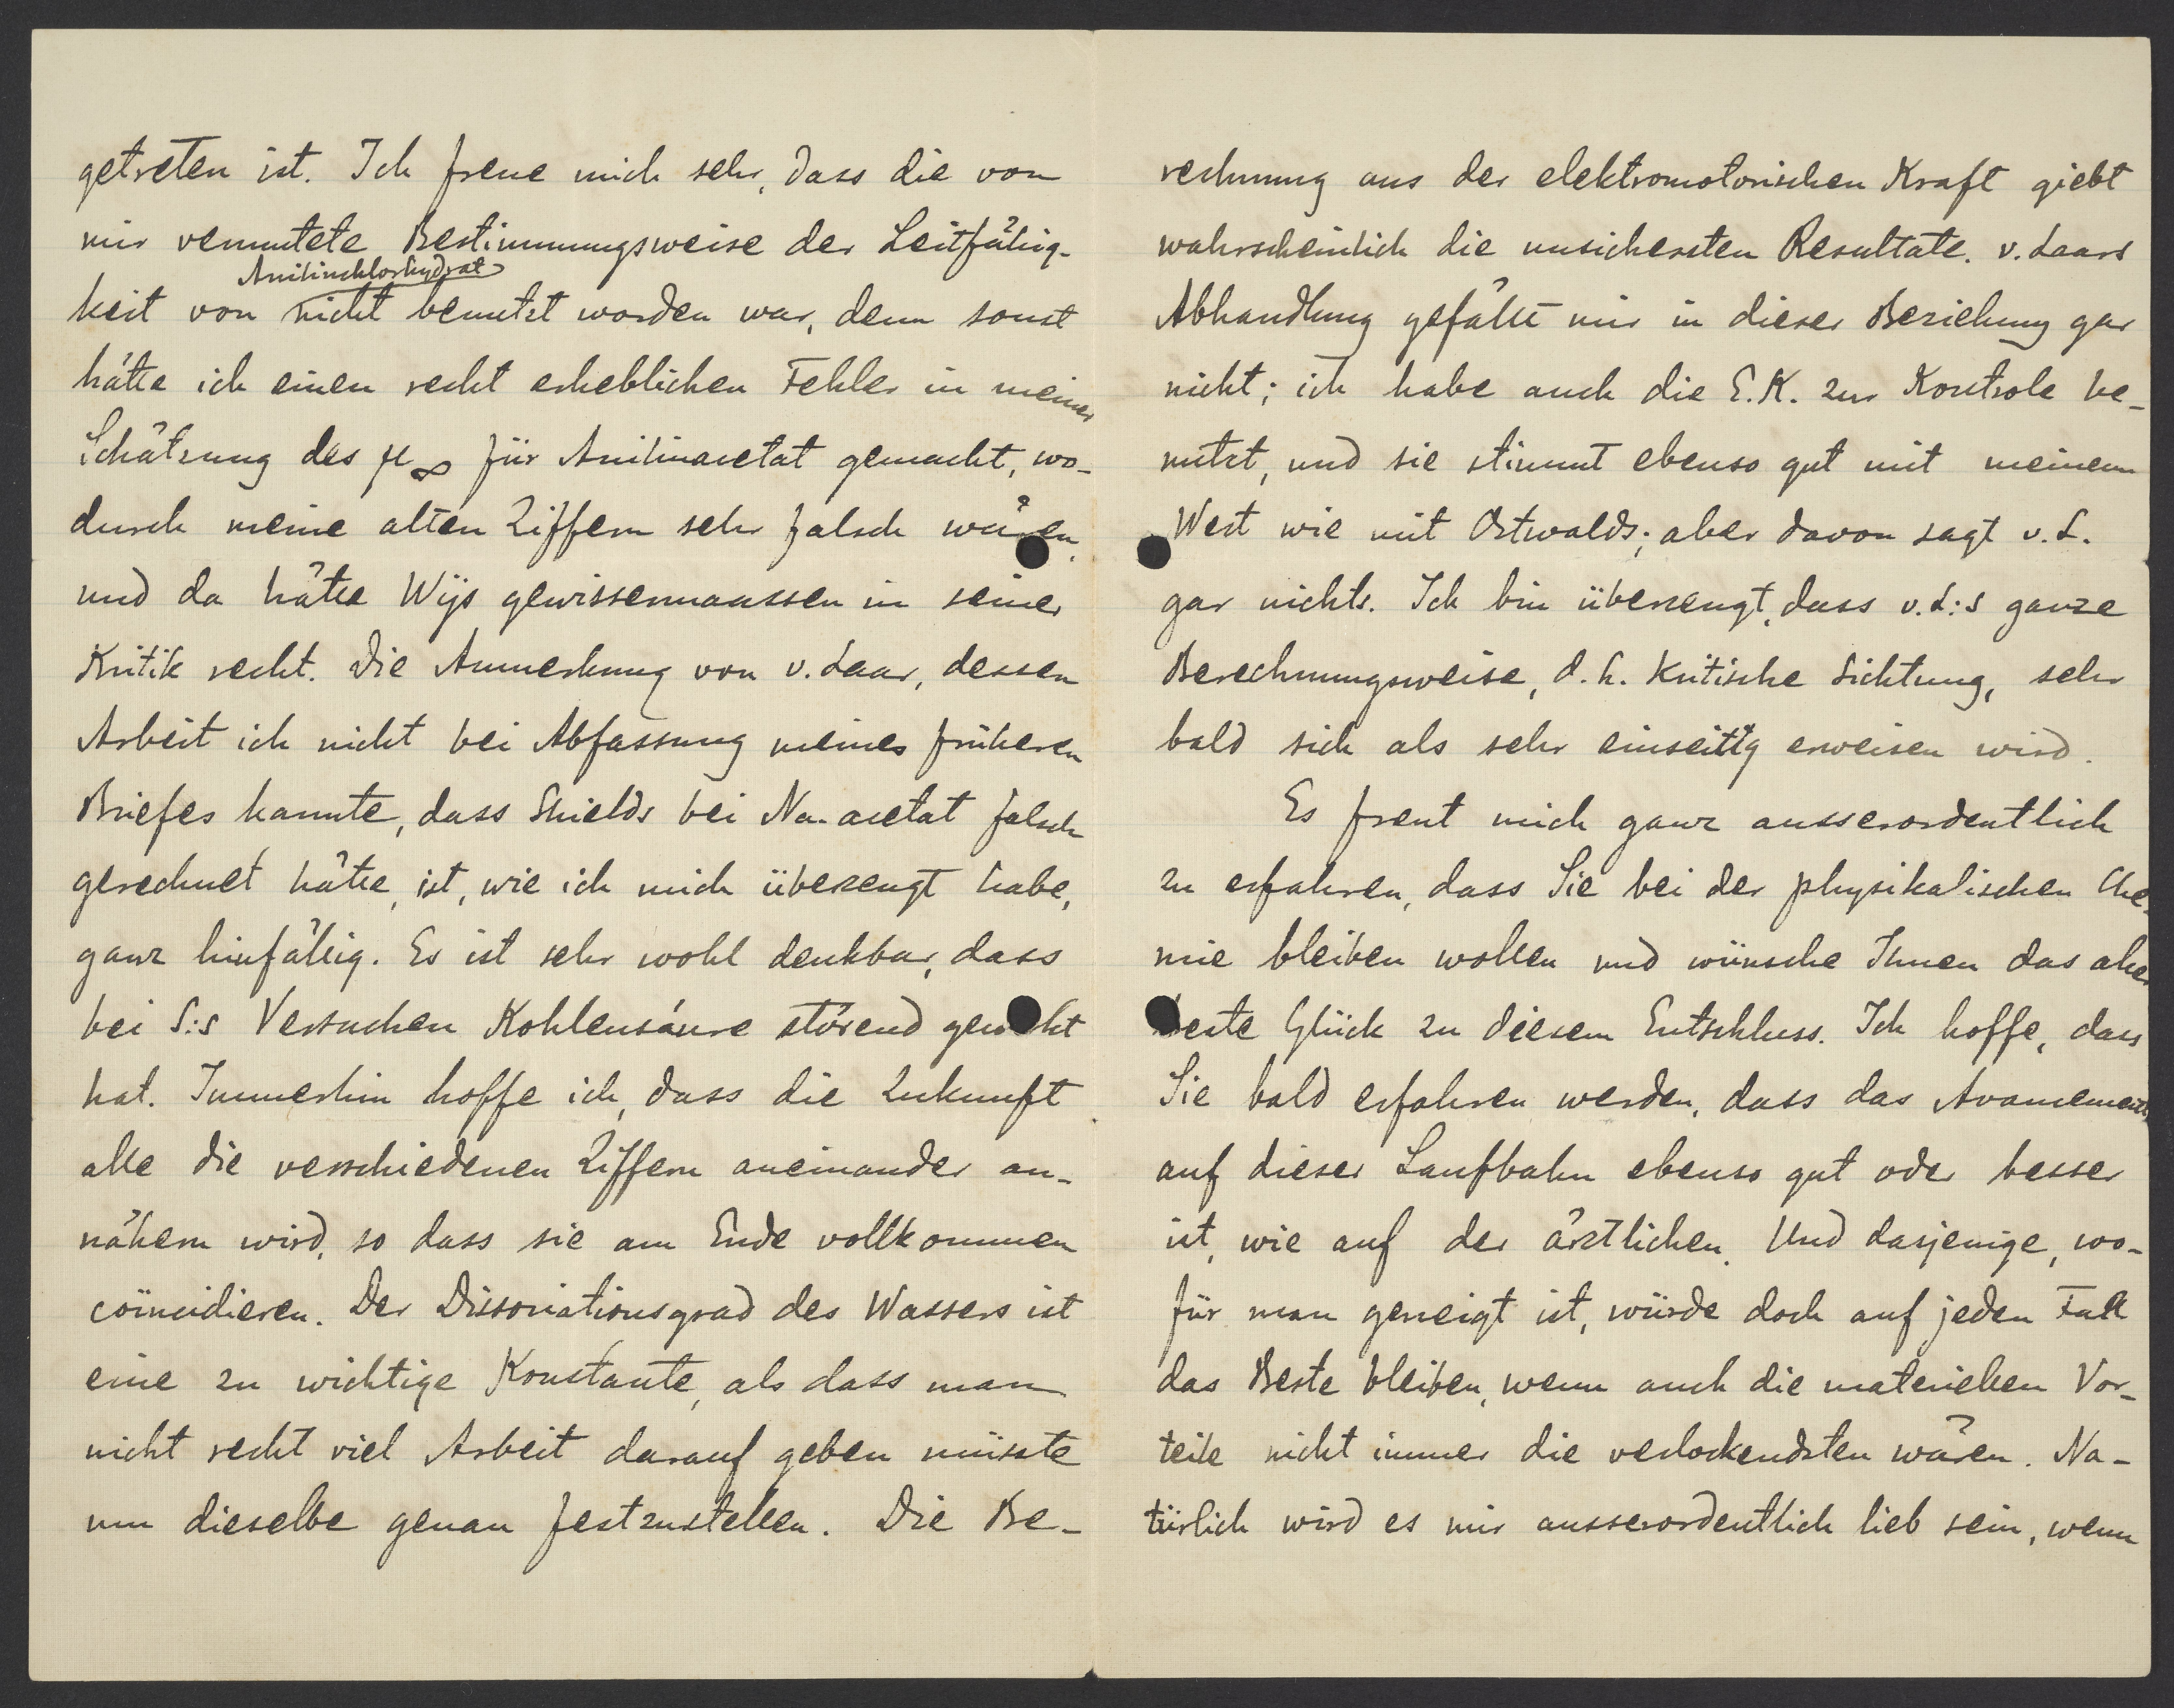 getreten ist. Ich freue mich sehr, dass die von
mir vermutete Bestimmungsweise der Leitfähig-
Anilinchlorhydrat
keit von nicht benutzt worden war, denn sonst
hätte ich einen recht erheblichen Fehler in meiner
Schätzung des μ∞ für Anilinacetat gemacht, wo-
durch meine alten Ziffern sehr falsch wären,
und da hätte Wijs gewissermaassen in seiner
Kritik recht. Die Anmerkung von v. Laar, dessen
Arbeit ich nicht bei Abfassung meines früheren
Briefes kannte, dass Shields bei Na-acetat falsch
gerechnet hätte, ist, wie ich mich überzeugt habe,
ganz hinfällig. Es ist sehr wohl denkbar, dass
bei S:s Versuchen Kohlensäure störend gewirkt
hat. Immerhin hoffe ich, dass die Zukunft
alle die verschiedenen Ziffern aneinander an-
nähern wird, so dass sie am Ende vollkommen
coïncidieren. Der Dissociationsgrad des Wassers ist
eine zu wichtige Konstante, als dass man
nicht recht viel Arbeit darauf geben müsste
um dieselbe genau festzustellen. Die Be-
rechnung aus der elektromotorischen Kraft giebt
wahrscheinlich die unsichersten Resultate. v. Laars
Abhandlung gefällt mir in dieser Beziehung gar
nicht; ich habe auch die E.K. zur Kontrole be-
nutzt, und sie stimmt ebenso gut mit meinem
Wert wie mit Ostwalds; aber davon sagt v. L.
gar nichts. Ich bin überzeugt, dass v. L:s ganze
Berechnungsweise, d.h. kritische Sichtung, sehr
bald sich als sehr einseitig erweisen wird.
Es freut mich ganz ausserordentlich
zu erfahren, dass Sie bei der physikalischen Che-
mie bleiben wollen und wünsche Ihnen das aller
beste Glück zu diesem Entschluss. Ich hoffe, dass
Sie bald erfahren werden, dass das Avancement
auf dieser Laufbahn ebenso gut oder besser
ist, wie auf der ärztlichen. Und dasjenige, wo-
für man geneigt ist, würde doch auf jeden Fall
das Beste bleiben, wenn auch die materiellen Vor-
teile nicht immer die verlockendsten wären. Na-
türlich wird es mir ausserordentlich lieb sein, wenn